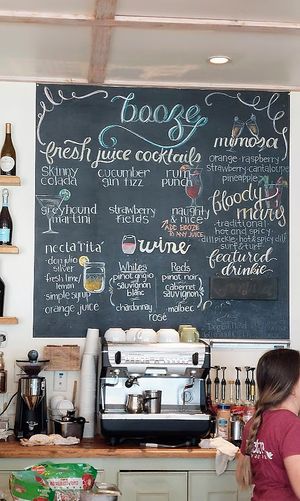 booze
fresh juice cocktails
skinny colada
cucumber gin fizz
rum punch
greyhound martini
strawberry fields
naughty & nice
ADD BOOZE TO ANY JUICE
necta'rita
don julio silver
fresh lime / lemon
simple syrup
orange juice
wine
Whites
pinot grigio
sauvignon blanc
chardonnay
Reds
pinot noir
cabernet sauvignon
malbec
rosé
mimosa
orange · raspberry
strawberry · cantaloupe
pineapple
bloody marys
traditional
hot and spicy
dill pickle · hot & spicy dill
surf & turf
featured drink